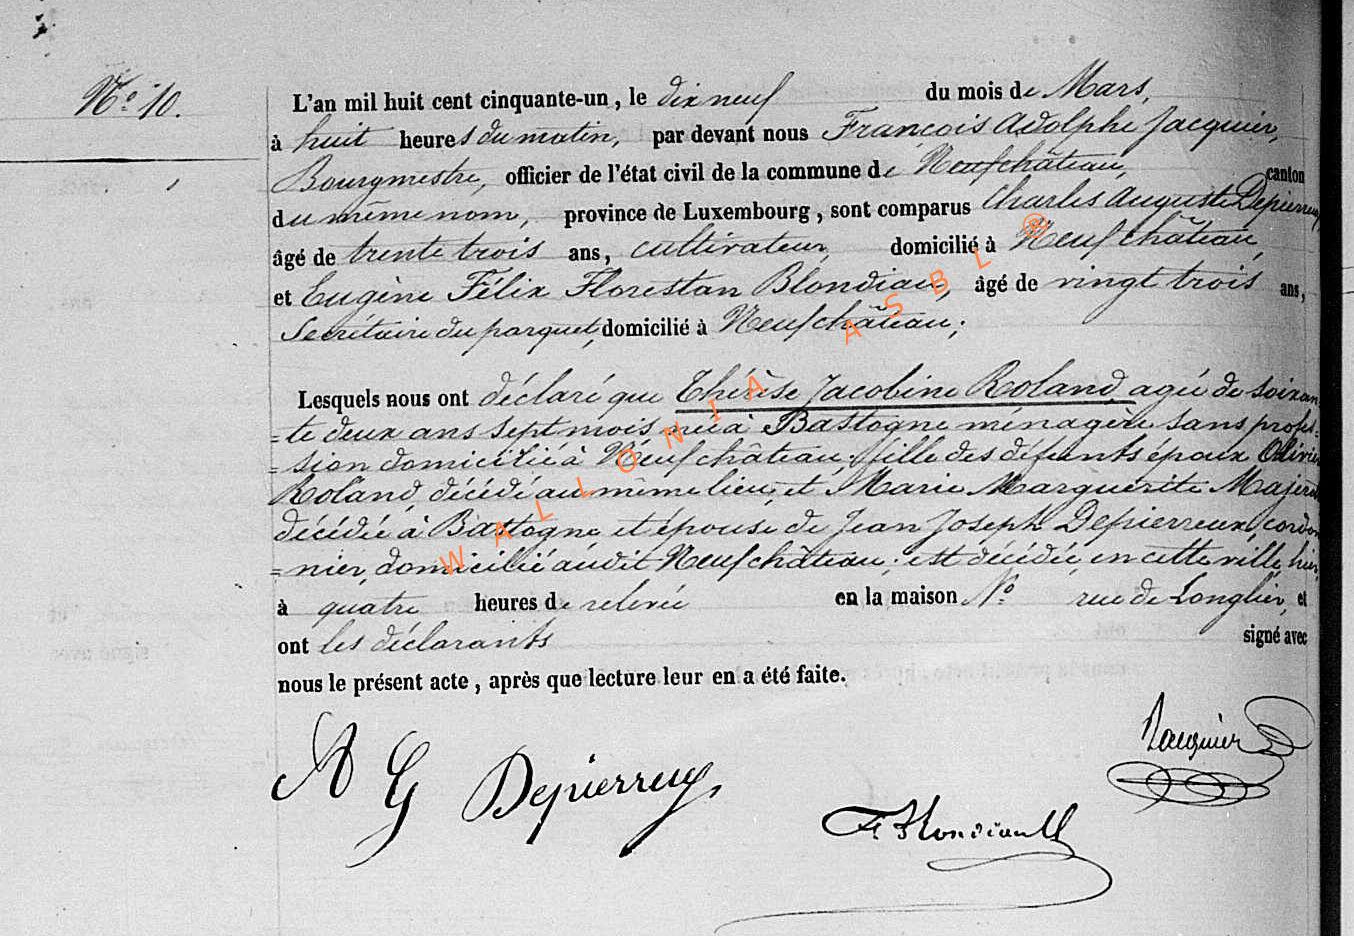 No 10.
L'an mil huit cent cinquante-un, le dix neuf du mois de Mars,
à huit heures du matin, par devant nous François Adolphe Jacquier,
Bourgmestre, officier de l'état civil de la commune de Neufchâteau, canton
du même nom, province de Luxembourg, sont comparus Charles Auguste Depierreux,
âgé de trente trois ans, cultivateur, domicilié à Neufchâteau,
et Eugène Félix Florestan Blondiau, âgé de vingt trois ans,
Secrétaire du parquet, domicilié à Neufchâteau;
Lesquels nous ont déclaré que Thérèse Jacobine Roland agée de soixan
=te deux ans sept mois née à Bastogne ménagère sans profes=
=sion domiciliée à Neufchâteau, fille des défunts époux Olivier
Roland, décédé au même lieu, et Marie Marguerite Majerus
décédée à Bastogne et épouse de Jean Joseph Depierreux, cordon
=nier, domicilié audit Neufchâteau; est décédée, en cette ville, hier,
à quatre heures de relevée en la maison No rue de Longlier, et
ont les déclarants signé avec
nous le présent acte, après que lecture leur en a été faite.
Jacquier
Depierreux
F. Blondiau
WALLONIA ASBL ®